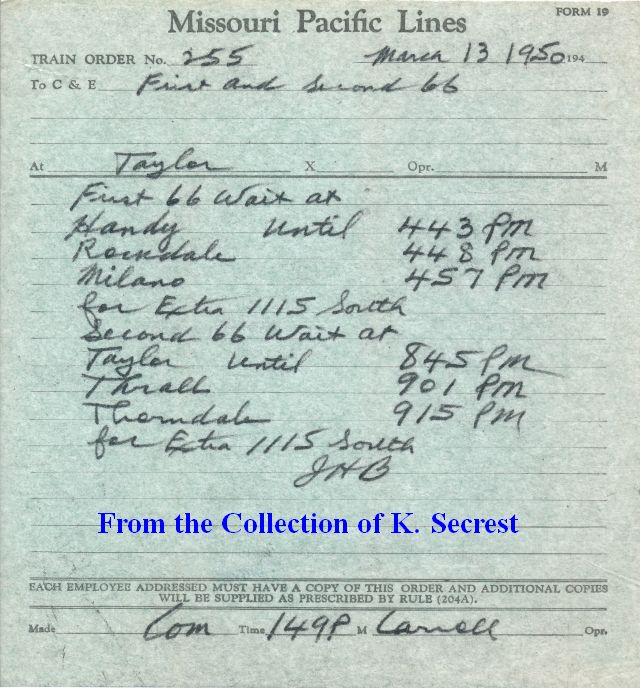 Missouri Pacific Lines
FORM 19
TRAIN ORDER No. 255 March 13 1950 194
To C & E First and Second 66
At Taylor X Opr. M
First 66 Wait at
Handy Until 443 PM
Rockdale 448 PM
Milano 457 PM
for Extra 1115 South
Second 66 Wait at
Taylor Until 845 PM
Thrall 901 PM
Thorndale 915 PM
for Extra 1115 South
JHB
From the Collection of K. Secrest
EACH EMPLOYEE ADDRESSED MUST HAVE A COPY OF THIS ORDER AND ADDITIONAL COPIES
WILL BE SUPPLIED AS PRESCRIBED BY RULE (204A).
Made Com Time 149P M Opr.